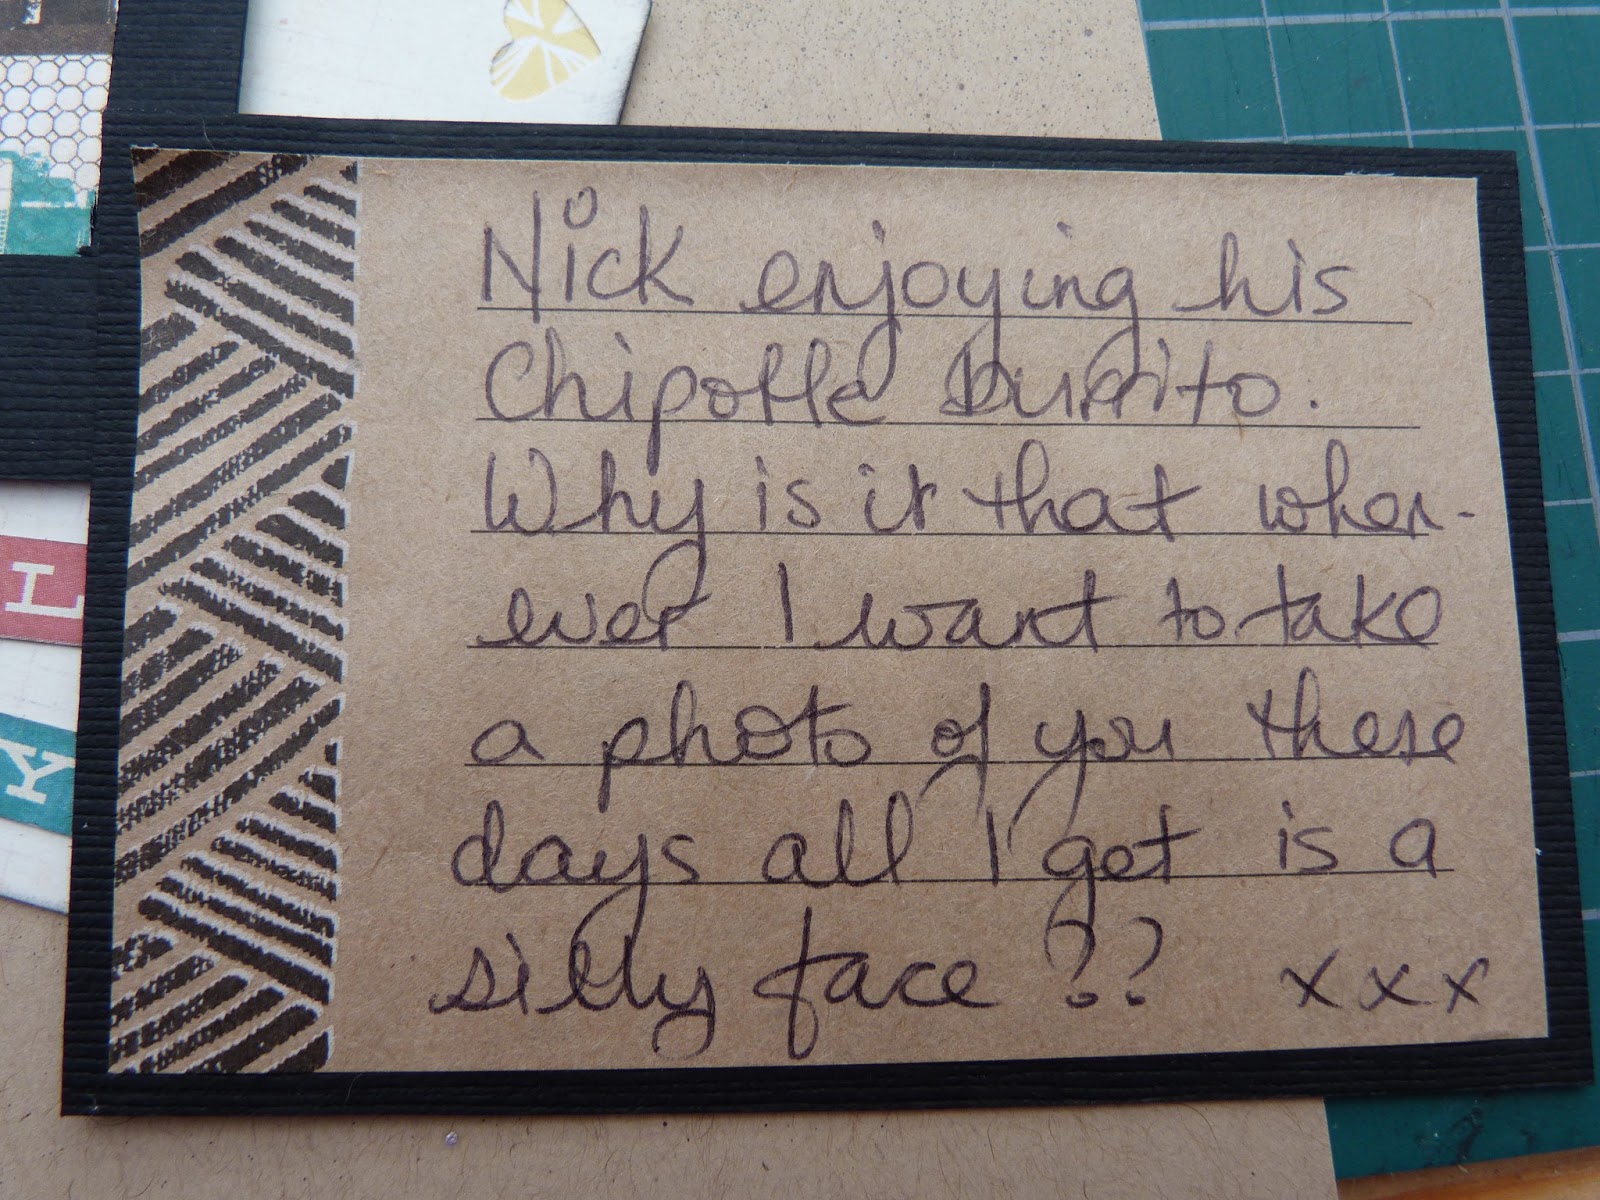 Nick enjoying his
Chipotle Burrito.
Why is it that when-
ever I want to take
a photo of you these
days all I get is a
silly face ?? xxx
L
K